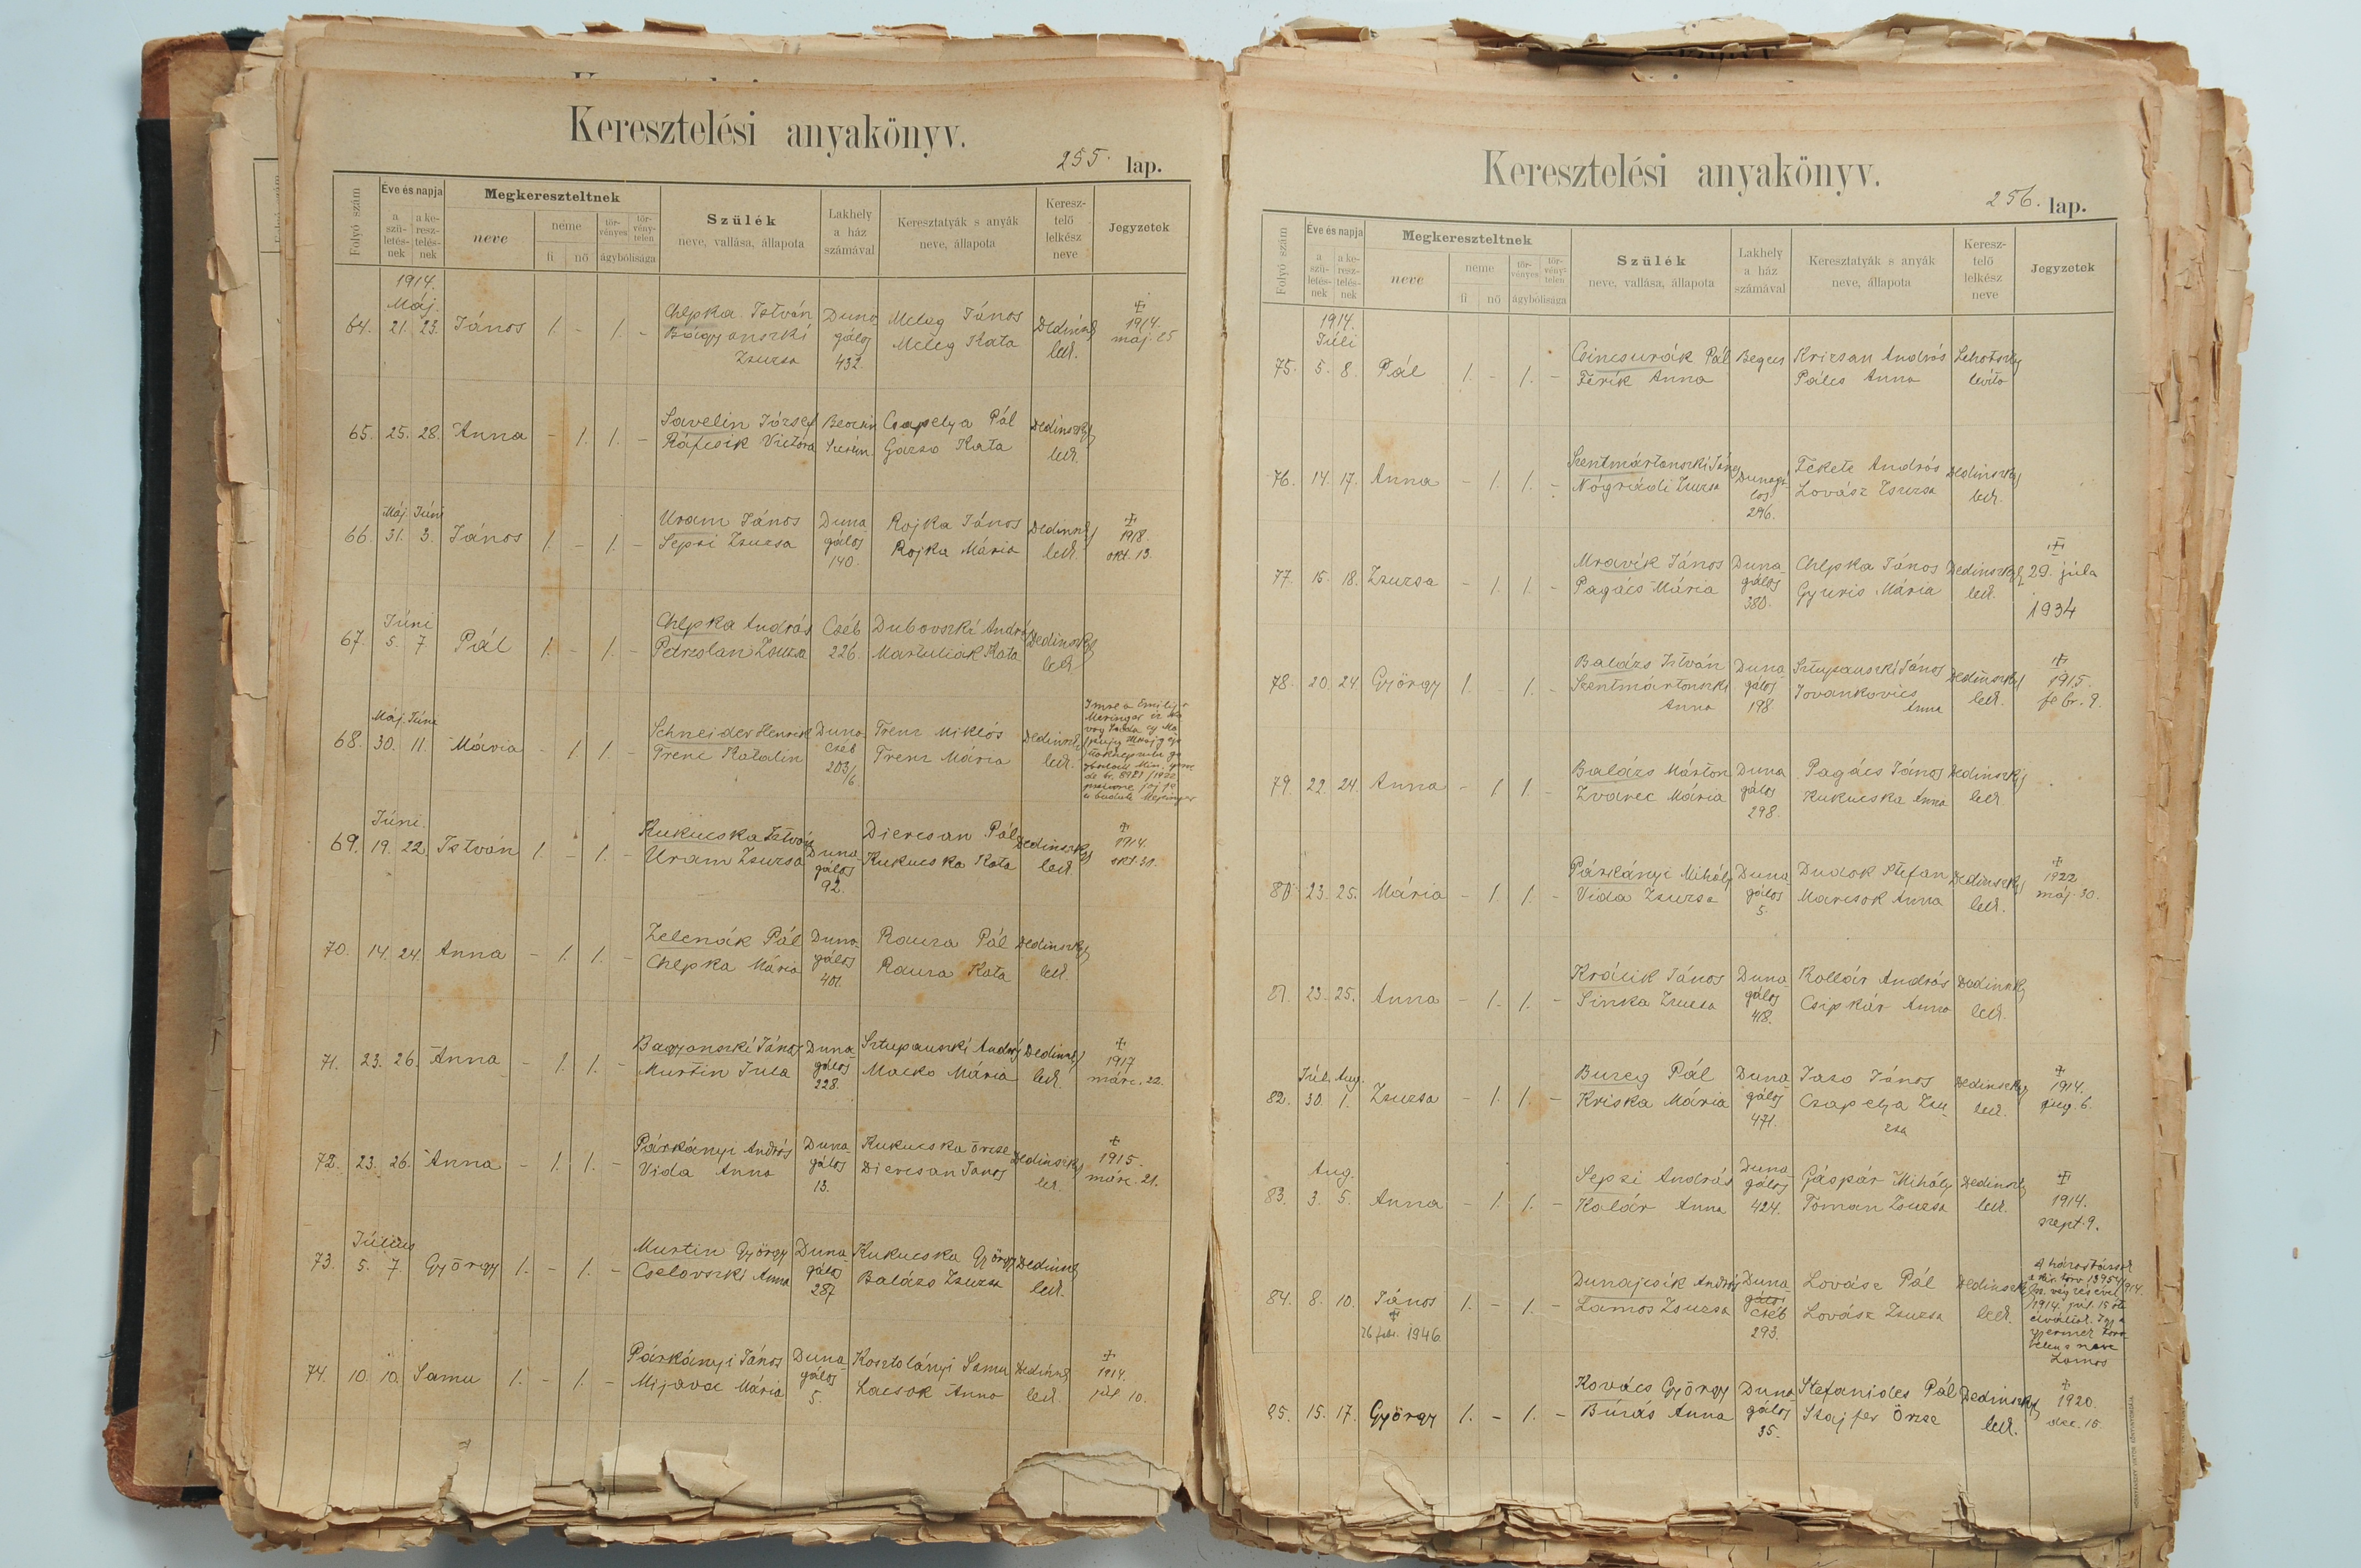 Keresztelési anyakönyv.
255. lap.
Folyó szám
Éve és napja
a szü-
letés-
nek
a ke-
resz-
telés-
nek
Megkereszteltnek
neve
neme
fi
nő
tör-
vényes
tör-
vény-
telen
ágybólisága
Szülék
neve, vallása, állapota
Lakhely
a ház
számával
Keresztatyák s anyák
neve, állapota
Keresz-
telő
lelkész
neve
Jegyzetek
1914.
Máj.
64. 21. 23. János 1. - 1. - Chlpka István Duna Meleg János Dedinszky 1914.
Bágyanszki gálos Meleg Kata lelk. máj. 25
Zsuzsa 432.
65. 25. 28. Anna - 1. 1. - Savelin József Beocsin Csapelya Pál Dedinszky
Ráfcsik Victora Szerém. Gazso Kata lelk.
Máj. Júni
66. 31. 3. János 1. - 1. - Uram János Duna Rojka János Dedinszky 1918.
Sepsi Zsuzsa gálos Rojka Mária lelk. okt. 13.
140.
Júni
67. 5. 7 Pál 1. - 1. - Chlpka András Cséb Dubovszki András Dedinszky
Petrzslan Zsuzsa 226. Martuliak Kata lelk.
Máj. Júni
68. 30. 11. Mária - 1. 1. - Schneider Henrik Duna Trenz Miklós Dedinszky
Trenc Katalin cséb Trenz Mária lelk.
203/6.
Júni.
69. 19. 22. István 1. - 1. - Kukucska István Duna Diercsan Pál Dedinszky 1914.
Uram Zsuzsa gálos Kukucska Kata lelk. okt. 31.
92.
70. 14. 24. Anna - 1. 1. - Zelenák Pál Duna- Rausa Pál Dedinszky
Chlpka Mária gálos Rausa Kata lelk.
401.
71. 23. 26. Anna - 1. 1. - Bagyanszki János Duna- Sztupauszki András Dedinszky 1917
Murtin Jula gálos Macko Mária lelk. márc. 22.
228.
72. 23. 26. Anna - 1. 1. - Párkányi András Duna- Kukucska Örzse Dedinszky 1915.
Vida Anna gálos Diercsan János lel. márc. 21.
13.
Július
73. 5. 7. György 1. - 1. - Murtin György Duna- Kukucska György Dedinszky
Cselovszki Anna gálos Balázs Zsuzsa lelk.
287
74. 10. 10. Samu 1. - 1. - Párkányi János Duna- Kosztolányi Samu Dedinszky 1914.
Mijavac Mária gálos Lacsok Anna lelk. júl 10.
5.
Keresztelési anyakönyv.
256. lap.
Folyó szám
Éve és napja
a szü-
letés-
nek
a ke-
resz-
telés-
nek
Megkereszteltnek
neve
neme
fi
nő
tör-
vényes
tör-
vény-
telen
ágybólisága
Szülék
neve, vallása, állapota
Lakhely
a ház
számával
Keresztatyák s anyák
neve, állapota
Keresz-
telő
lelkész
neve
Jegyzetek
1914.
Júli
75. 5. 8. Pál 1. - 1. - Csincsurák Pál Begecs Krizsan András Lehotszky
Ferik Anna Pálcs Anna levita
76. 14. 17. Anna - 1. 1. - Szentmártonszki János Dunagá- Fekete András Dedinszky
Nógrádi Zsuzsa los Lovász Zsuzsa lelk.
296.
77. 15. 18. Zsuzsa - 1. 1. - Mravik János Duna- Chlpka János Dedinszky 29. júla
Pagács Mária gálos Gyuris Mária lelk. 1934
380.
78. 20. 24. György 1. - 1. - Balázs István Duna- Sztupauszki János Dedinszky 1915.
Szentmártonszki gálos Jovankovics lelk. febr. 9.
Anna 198 Anna
79. 22. 24. Anna - 1 1. - Balázs Márton Duna Pagács János Dedinszky
Zvarec Mária gálos Kukucska Anna lelk.
298.
80. 23. 25. Mária - 1. 1. - Párkányi Mihály Duna- Dudok Stefan Dedinszky 1922
Vida Zsuzsa gálos Marcsok Anna lelk. máj. 30.
5.
81. 23. 25. Anna - 1. 1. - Králik János Duna- Kollár András Dedinszky
Sinka Zsuzsa gálos Csipkár Anna lelk.
418.
Júl. Aug.
82. 30. 1. Zsuzsa - 1. 1. - Bureg Pál Duna- Jaso János Dedinszky 1914.
Kriska Mária gálos Csapelya Zsu- lelk. aug. 6.
471. zsa
Aug.
83. 3. 5. Anna - 1. 1. - Sepsi András Duna- Gáspár Mihály Dedinszky 1914.
Kolár Anna gálos Toman Zsuzsa lelk. szept. 9.
424.
84. 8. 10. János 1. - 1. - Dunajcsik András Duna- Lovász Pál Dedinszky
Lamos Zsuzsa gálos Lovász Zsuzsa lelk.
26 febr. 1946 cséb
293.
neve
Lamos
85. 15. 17. György 1. - 1. - Kovács György Duna- Stefanides Pál Dedinszky 1920.
Búrás Anna gálos Stajfer Örzse lelk. dec. 15.
35.